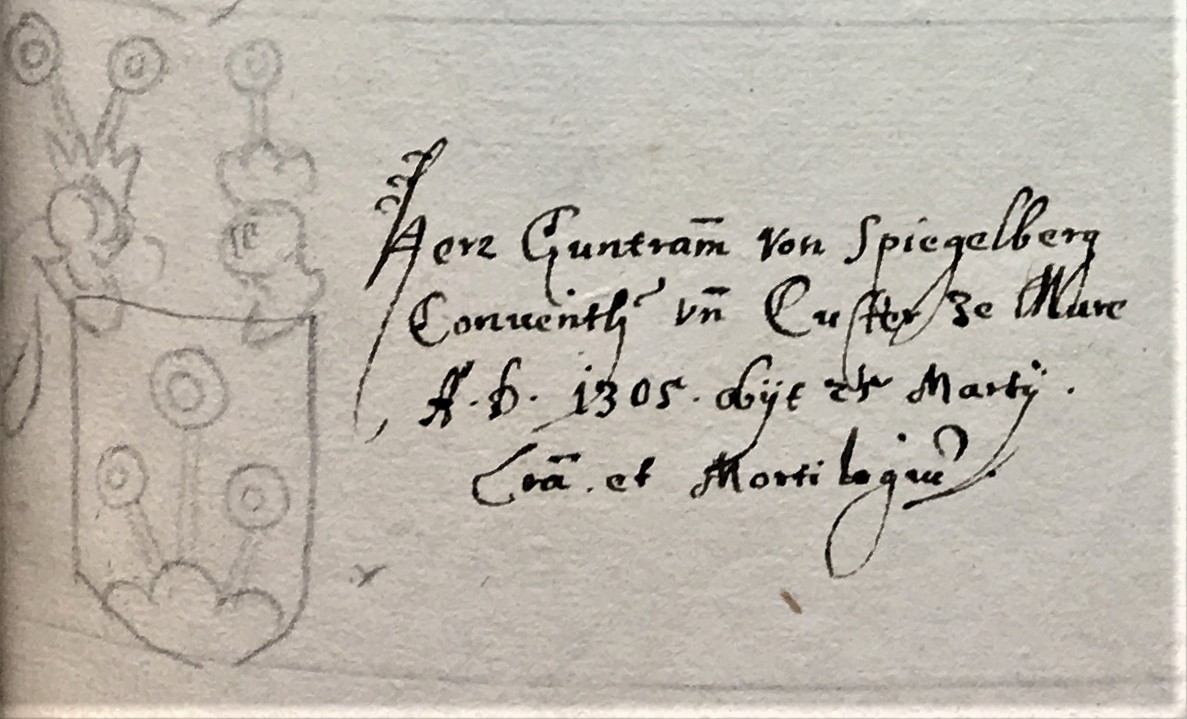 Herz Guntram̄ von Spiegelberg
Conuenth vn̄ Custer ze Mure
A. D. 1305. obijt Martij.
et Mortilogiu